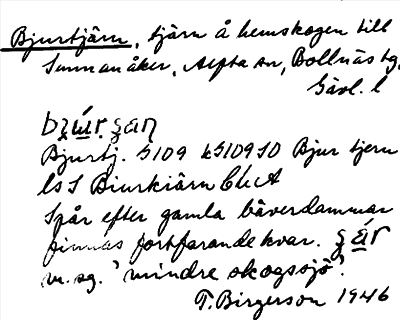 Bjurtjärn, tjärn å hemskogen till
Sunnanåker, Alfta sn, Bollnäs tg,
Gävl. l
Bjurtj. S109 kS109 SO Bjur tjern
ls S Biurkiärn
Spår efter gamla bäverdammar
finnas fortfarande kvar.
m. sg. 'mindre skogssjö'.
T. Birgerson 1946